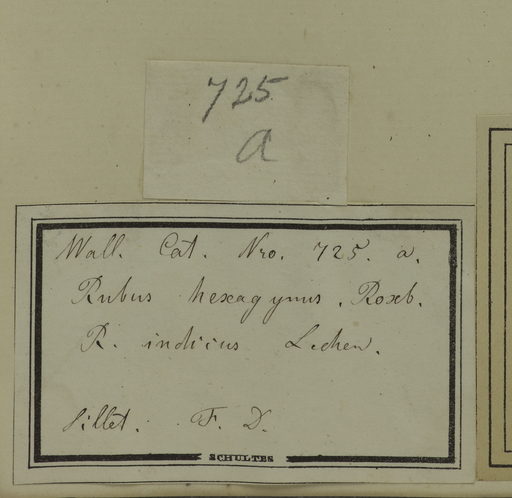 725
a
Wall. Cat. Nro. 725. a.
Rubus hexagynus. Roxb.
R. indicus Lechen.
Sillet. F. D.
SCHULTES